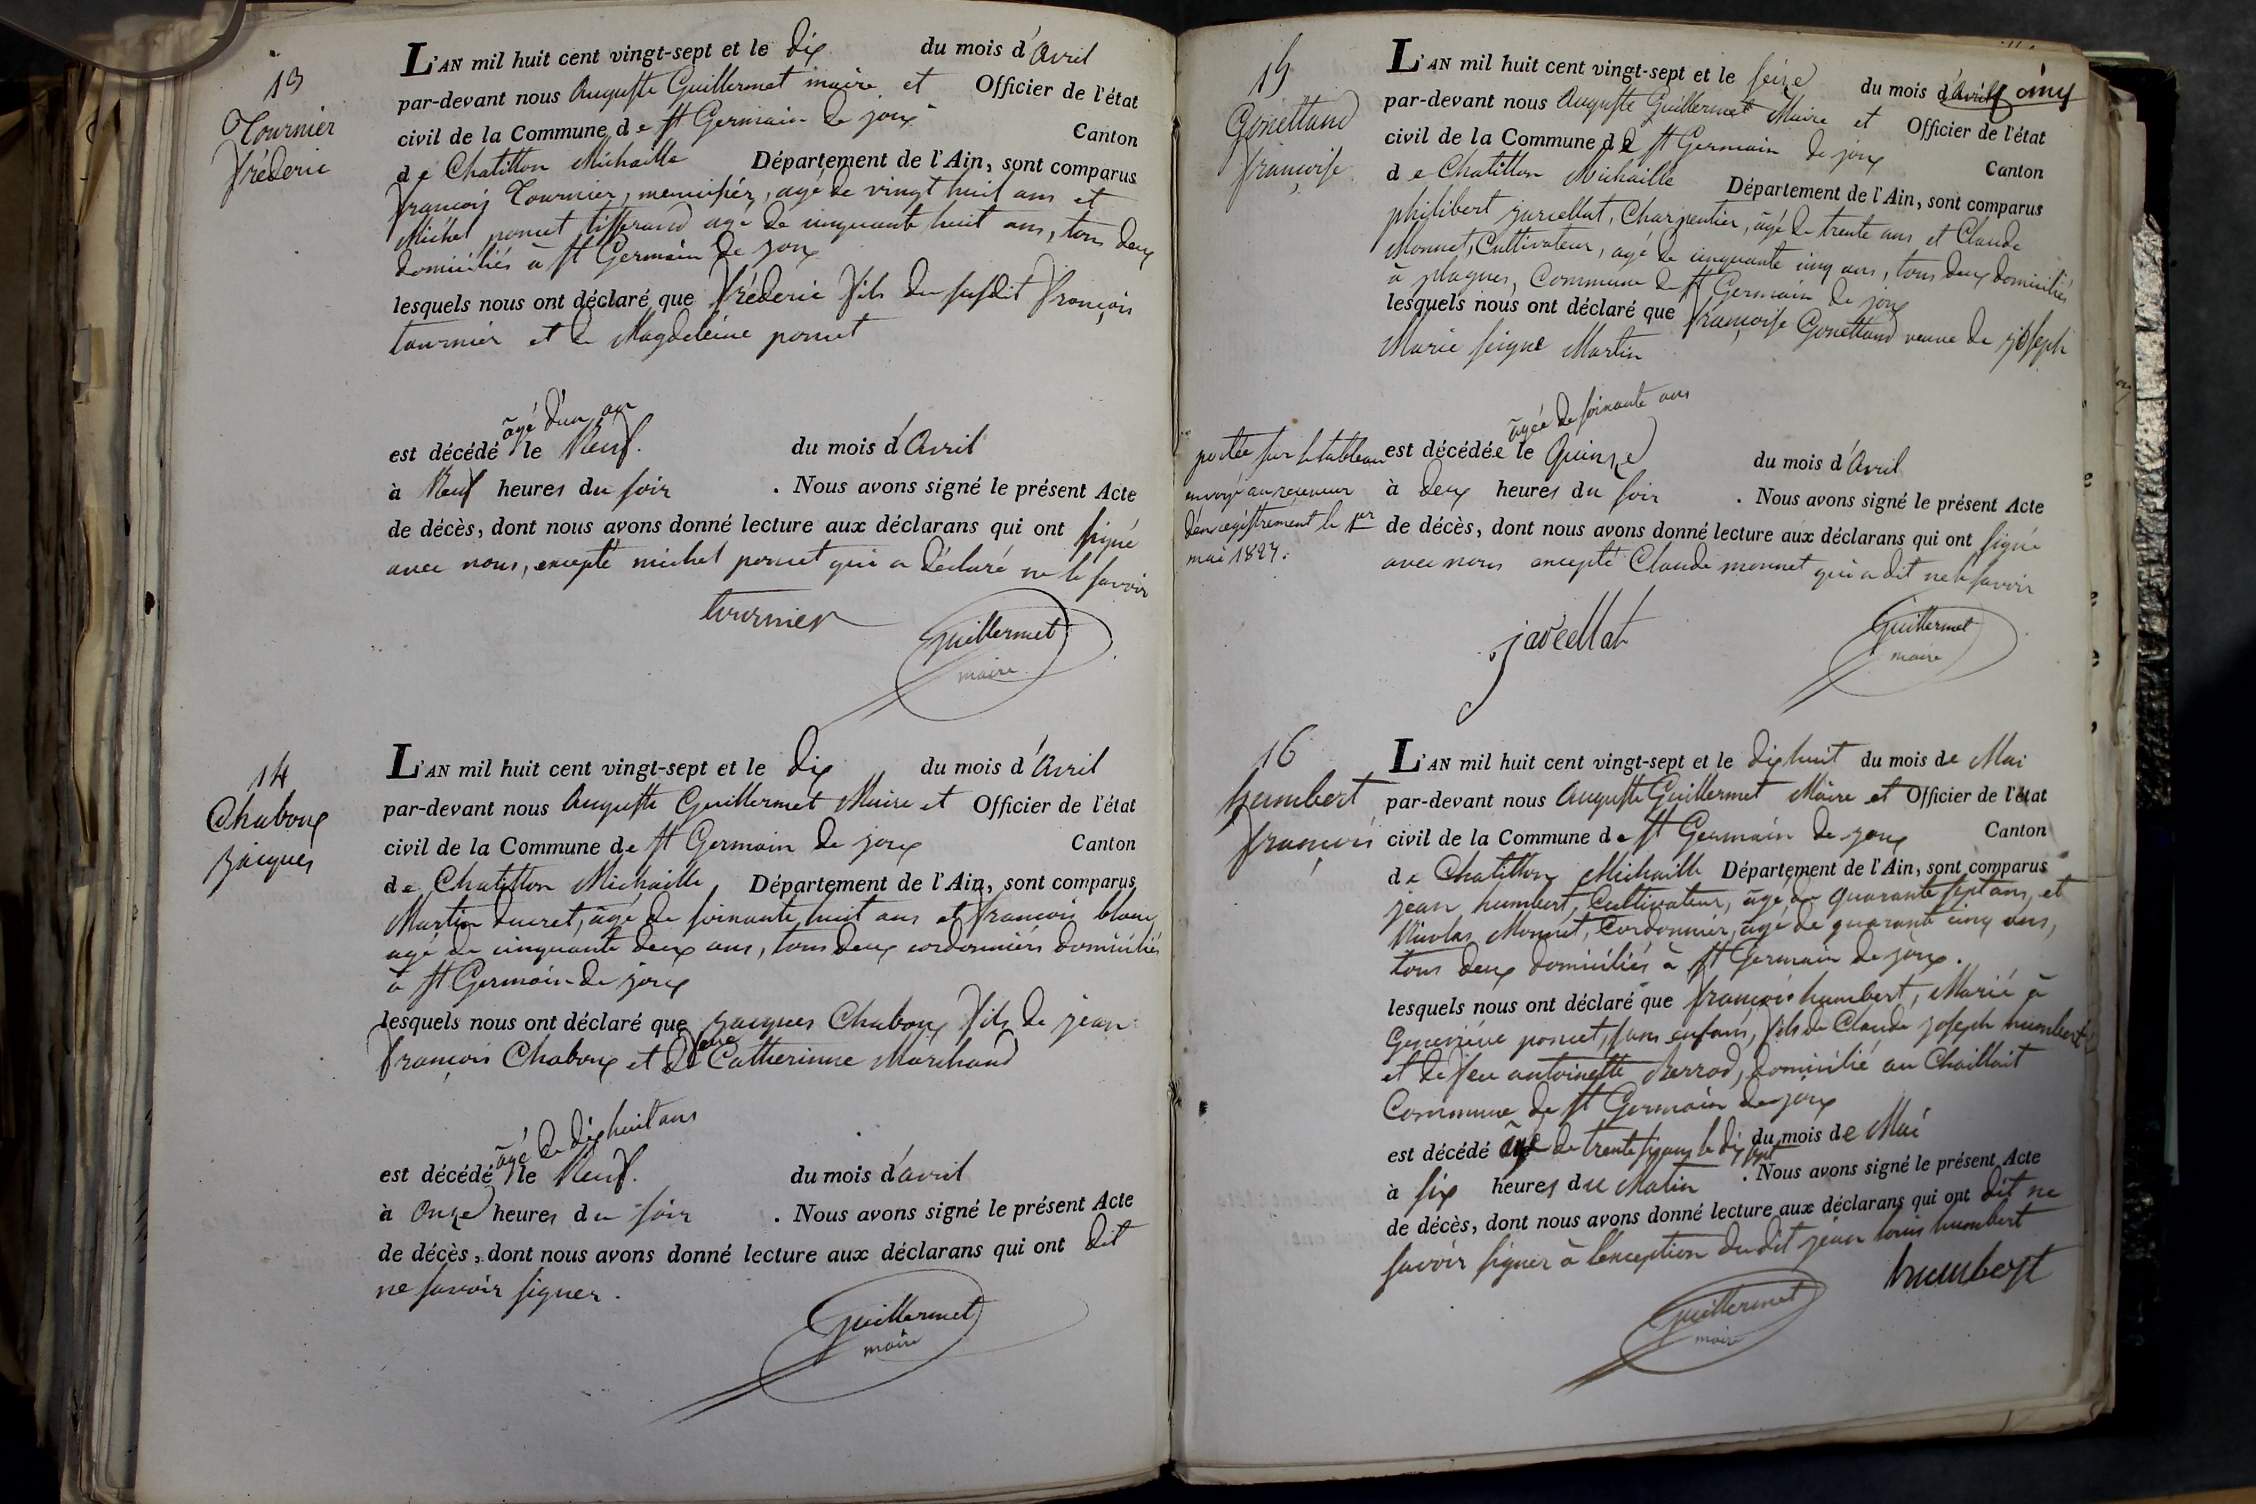 13
Tournier
fréderic
L'AN mil huit cent vingt-sept et le dix du mois d'Avril
par-devant nous Auguste Guillermet maire et Officier de l'état
civil de la Commune de St Germain de joux Canton
de Chatillon Michaille Département de l'Ain, sont comparus
françois Tournier, menuisier, agé de vingt huit ans et
Michel poncet tisserand agé de cinquante huit ans, tous deux
domiciliés à St Germain de joux
lesquels nous ont déclaré que fréderic fils du susdit françois
tournier et de Magdeleine poncet
âgé d'un an
est décédé le Neuf. du mois d'Avril
à Neuf heures du soir . Nous avons signé le présent Acte
de décès, dont nous avons donné lecture aux déclarans qui ont signé
avec nous, excepté michel poncet qui a déclaré ne le savoir
tournier
Guillermet
maire
14
Chaboux
jacques
L'AN mil huit cent vingt-sept et le dix du mois d'Avril
par-devant nous Auguste Guillermet Maire et Officier de l'état
civil de la Commune de St Germain de joux Canton
de Chatillon Michaille Département de l'Ain, sont comparus
Martin ducret, âgé de soixante huit ans et françois blanc
agé de cinquante deux ans, tous deux cordonniers domiciliés
à St Germain de joux
lesquels nous ont déclaré que jacques Chaboux fils de jean
françois Chaboux et de feue Catherinne Marchand
âgé de dix huit ans
est décédé le Neuf. du mois d'avril
à Onze heures du soir . Nous avons signé le présent Acte
de décès, dont nous avons donné lecture aux déclarans qui ont dit
ne savoir signer.
Guillermet
maire
15
Gonettand
françoise
L'AN mil huit cent vingt-sept et le seize du mois d'Avril
par-devant nous Auguste Guillermet Maire et Officier de l'état
civil de la Commune de St Germain de joux Canton
de Chatillon Michaille Département de l'Ain, sont comparus
philibert javellat, Charpentier, âgé de trente ans et Claude
Monnet, Cultivateur, agé de cinquante cinq ans, tous deux domiciliés
à plagnes, Commune de St Germain de joux
lesquels nous ont déclaré que françoise Gonettand veuve de joseph
Marie seigne Martin
âgée de soixante ans
portée sur le tableau
envoyé au receveur
d'enregistrement le 1er
mai 1827.
est décédée le Quinze du mois d'Avril
à deux heures du soir . Nous avons signé le présent Acte
de décès, dont nous avons donné lecture aux déclarans qui ont signé
avec nous excepté Claude monnet qui a dit ne le savoir
javellat
Guillermet
maire
16
humbert
françois
L'AN mil huit cent vingt-sept et le dix huit du mois de Mai
par-devant nous Auguste Guillermet Maire et Officier de l'état
civil de la Commune de St Germain de joux Canton
de Chatillon Michaille Département de l'Ain, sont comparus
jean humbert, Cultivateur, âgé de quarante sept ans, et
Nicolas Monnet, Cordonnier, âgé de quarante cinq ans,
tous deux domiciliés à St Germain de joux.
lesquels nous ont déclaré que françois humbert, Marié à
Geneviève poncet, sans enfans, fils de Claude joseph humbert
et de feu antoinette berrod, domicilié au Chaillait
Commune de St Germain de joux
est décédé âgé de trente six ans le dix sept du mois de Mai
à six heures du Matin . Nous avons signé le présent Acte
de décès, dont nous avons donné lecture aux déclarans qui ont dit ne
savoir signer à l'exception du dit jean louis humbert
humbert
Guillermet
maire